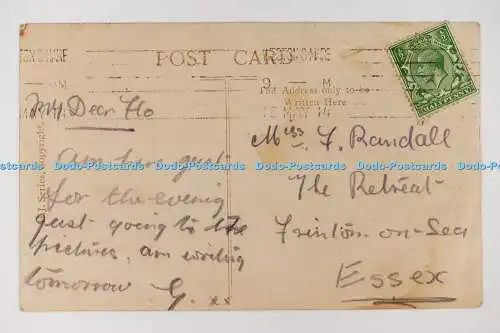 WESTON S MARE
POST CARD
9 - M
The Address only to be
Written Here
14
HALFPENNY
My Dear Flo
Am here just
for the evening
just going to the
pictures, am writing
tomorrow G. xx
Miss F. Randall
The Retreat
Frinton-on-Sea
Essex
J. Series, Copyright.
Dodo-Postcards Dodo-Postcards Dodo-Postcards Dodo-Postcards Dodo-Postcards